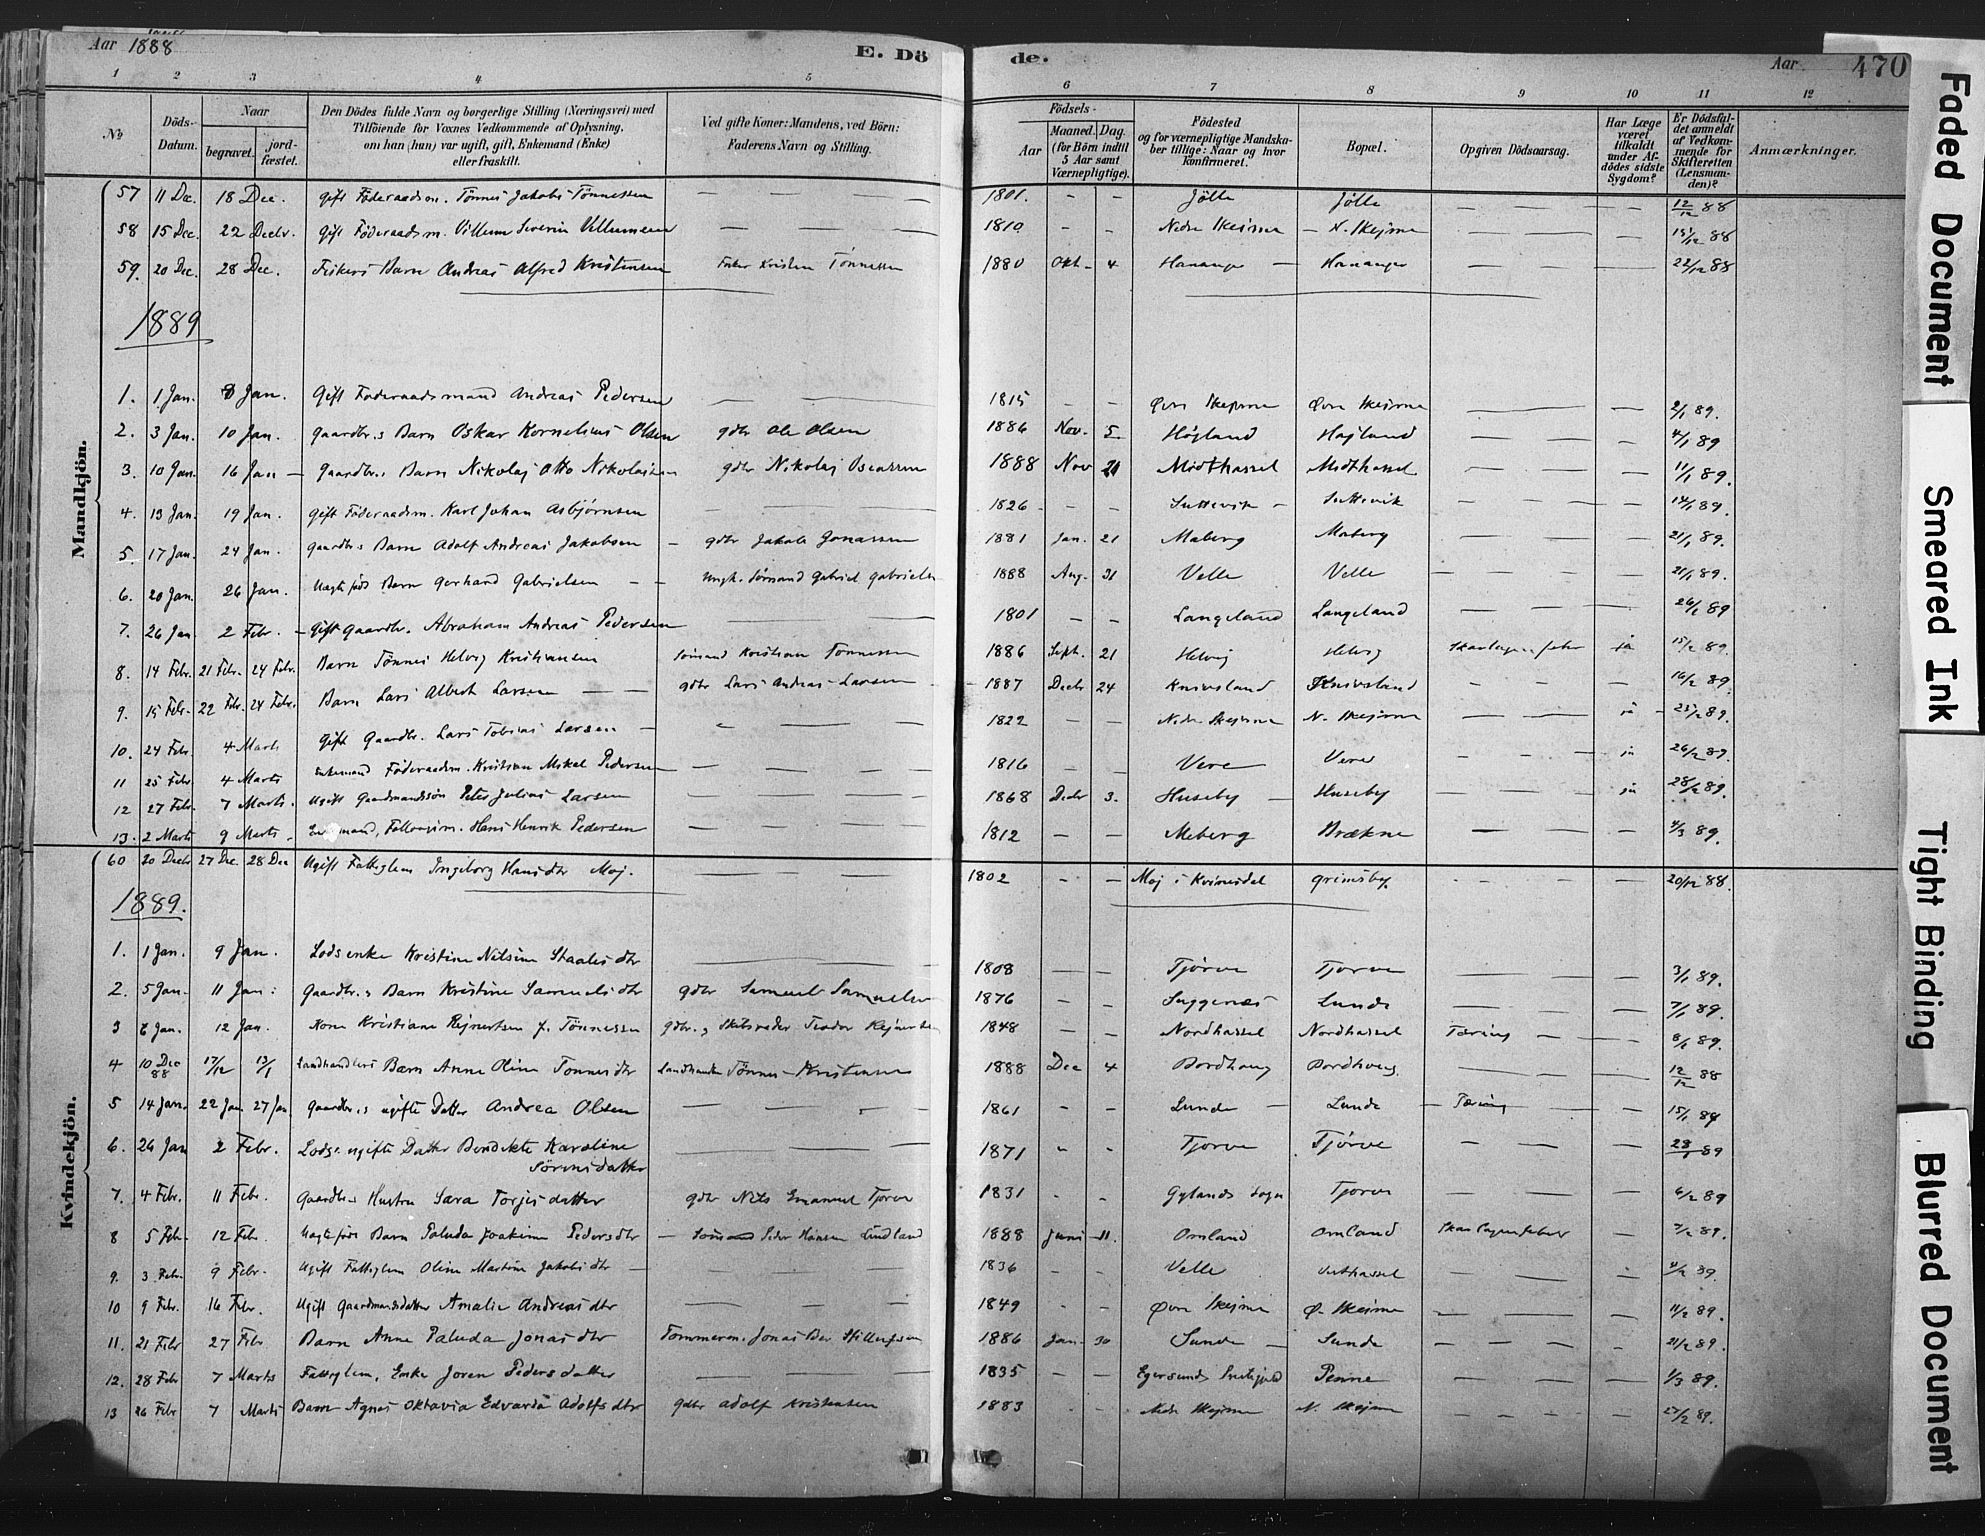 Aar 1888 E. Dö de. Aar 470
1 2 3 4 5 6 7 8 9 10 11 12
No Döds-Datum. Naar begravet. jordfæstet. Den Dödes fulde Navn og borgerlige Stilling (Næringsvei) med Tilföiende for Voxnes Vedkommende af Oplysning, om han (hun) var ugift, gift, Enkemand (Enke) eller fraskilt. Ved gifte Koner: Mandens, ved Börn: Faderens Navn og Stilling. Födsels- Aar Maaned. Dag. (for Börn indtil 5 Aar samt Værnepligtige). Födested og for værnepligtige Mandskaber tillige: Naar og hvor konfirmeret. Bopæl. Opgiven Dödsaarsag. Har Læge været tilkaldt under Afdödes sidste Sygdom? Er Dödsfaldet anmeldt af Vedkommende for Skifteretten (Lensmanden)? Anmærkninger.
Mandkjön.
57 11 Dec. 18 Dec. gift Föderaadsm. Tönnes Jakobs Tönnessen — — 1801. - - Jölle Jölle — — — 12/12 88
58 15 Dec. 22 Decbr. Gift Föderaadsm. Villum Severin Villumsen — — — 1810 — — Nedre Skejsnæ N. Skejsnæ — — — 15/12 88
59. 20 Dec. 28 Dec. Fiskers Barn Andreas Alfred Kristensen Fisker Kristen Tönnessen 1880 Okt. 4 Hananger Hananger — — — 22/12 88
1889
1. 1 Jan. 8 Jan. Gift Föderaadsmand Andreas Pedersen — — 1815 - - Øvre Skejsnæ Øvre Skejsnæ — — 2/1 89.
2. 3 Jan. 10 Jan. Gaardbr.s Barn Oskar Kornelius Olsen gdbr Ole Olsen 1886 Nov. 5 Højland Højland — — — 4/1 89
3. 10 Jan. 16 Jan Gaardbr.s Barn Nikolaj Otto Nikolaisen gdbr Nikolaj 1888 Nov 21 Midthassel Midthassel — — — 11/1 89.
4. 13 Jan. 19 Jan. gift Föderaadsm. Karl Johan Asbjørnsen — — 1826 - - — — — 14/1 89.
5. 17 Jan. 24 Jan. gaardbr.s Barn Adolf Andreas Jakobsen gdbr Jakob Jonassen 1881 Jan. 21 Maberg Maberg — — — 21/1 89.
6. 20 Jan. 26 Jan. Uægte föds Barn Gerhard Gabrielsen Ungk. Sömand Gabriel Gabrielsen 1888 Aug. 31 Velle Velle — — — 21/1 89.
7. 26 Jan. 2 Febr. Gift Gaardbr. Abraham Andreas Pedersen — — 1801 - - Langeland Langeland — — — 89
8. 14 Febr. 21 Febr. 24 Febr. Barn Tönnes Helvig Kristiansen Sömand Kristian Tönnessen 1886 Septb. 21 Helvig Helvig Skarlagensfeber ja 15/2 89.
9. 15 Febr. 22 Febr. 24 Febr. Barn Lars Albert Larsen gdbr Lars Andreas Larsen 1887 Decbr 24 Knivsland Knivsland — — — 16/2 89.
10. 24 Febr. 4 Marts Gift Gaardbr. Lars Tobias Larsen — — — 1822 - - Nedre Skejsnæ N. Skejsnæ — — ja 25/2 89.
11 25 Febr 4 Marts Enkemand Föderaadsm. Kristian Mikal Pedersen — — 1816 - - Vere Vere — — ja 26/2 89.
12 27 Febr. 7 Marts. Ugift Gaardmandssön Peter Julius Larsen — — — 1868 Decbr 3. Huseby Huseby — — ja 28/2 89.
13. 2 Marts 9 Marts Hans Henrik Pedersen — — — 1812 — — Meberg Brækne — — — 4/3 89.
Kvindekjön.
60 20 Decbr 27 Dec. 28 Dec Ugift Fattiglem Ingeborg Hansdtr Moj. — — 1802 - — Moj i Kvinesdal Grimsby. — — — 20/12 88.
1889.
1. 1 Jan. 9 Jan. Lodsenke Kristine Nilsine Staalesdtr — — 1808 — — Tjörve Tjorve — — — 3/1 89.
2. 5 Jan. 11 Jan. Gaardbr.s Barn Kristine Samuelsdtr gdbr Samuel Samuelsen 1876 — — Lunde — — — 7/1 89.
3 7 Jan. 12 Jan. Kone Kristiane Rejnertsen f. Tönnessen gdbr. og Skibsreder Teodor Rejnertsen 1848 — — Nordhassel Nordhassel Tæring — — 8/1 89.
4 10 Dec 88 17/12 13/1 Landhandlers Barn Anne Oline Tønnesdtr Landhandler Tönnes Kristensen 1888 Dec 4 Bordhaug Bordhaug — — — 12/12 88
5 14 Jan. 22 Jan 27 Jan. Gaardbr.s ugifte Datter Andrea Olsen — — — 1861 - - Lunde Lunde Tæring — — 15/1 89
6. 26 Jan 2 Febr. Lods. ugifte Datter Bendikte Karoline — — 1871 - - Tjorve Tjörve — — — 28/1 89
Sörensdatter
7. 4 Febr. 11 Febr. Gaardbr.s Hustru Sara Torjesdatter gdbr Nils Emanuel Tjorve 1831 - - Gylands Sogn Tjorve — — — 6/2 89
8 5 Febr. 12 Febr. Uægte föds Barn Paluda Joakime Pedersdtr Sömand Peder Hansen Lindland 1888 Juni 11. Omland Omland Skarlagensfeber — 7/2 89.
9. 3 Febr. 9 Febr. Ugift Fattiglem Oline Martine Jakobsdtr — — 1836 - - Velle Vesthassel — — - 4/2 39.
10 9 Febr. 16 Febr. Ugift Gaardmandsdatter Amalie Andreasdtr — — — 1849 - - Øvre Skejsnæ Ø. Skejsnæ — — — 11/2 89.
11. 21 Febr 27 Febr Barn Anne Paluda Jonasdtr Tømmerm. Jonas Ber 1886 Jan. 30 Sunde Sunde — — - 21/2 89.
12. 28 Febr 7 Marts Fattiglem, Enke Joren Pedersdatter — — — 1835 — — Egersunds Præstegjeld Penne — — — 1/3 89.
13 26 Febr 7 Marts Barn Agnes Oktavia Edvarda Adolfsdtr gdbr Adolf Kristensen 1883 - - Nedre Skejsnæ N. Skejsnæ — — — 27/2 89.
Faded Document
Smeared Ink
Tight Binding
Blurred Document